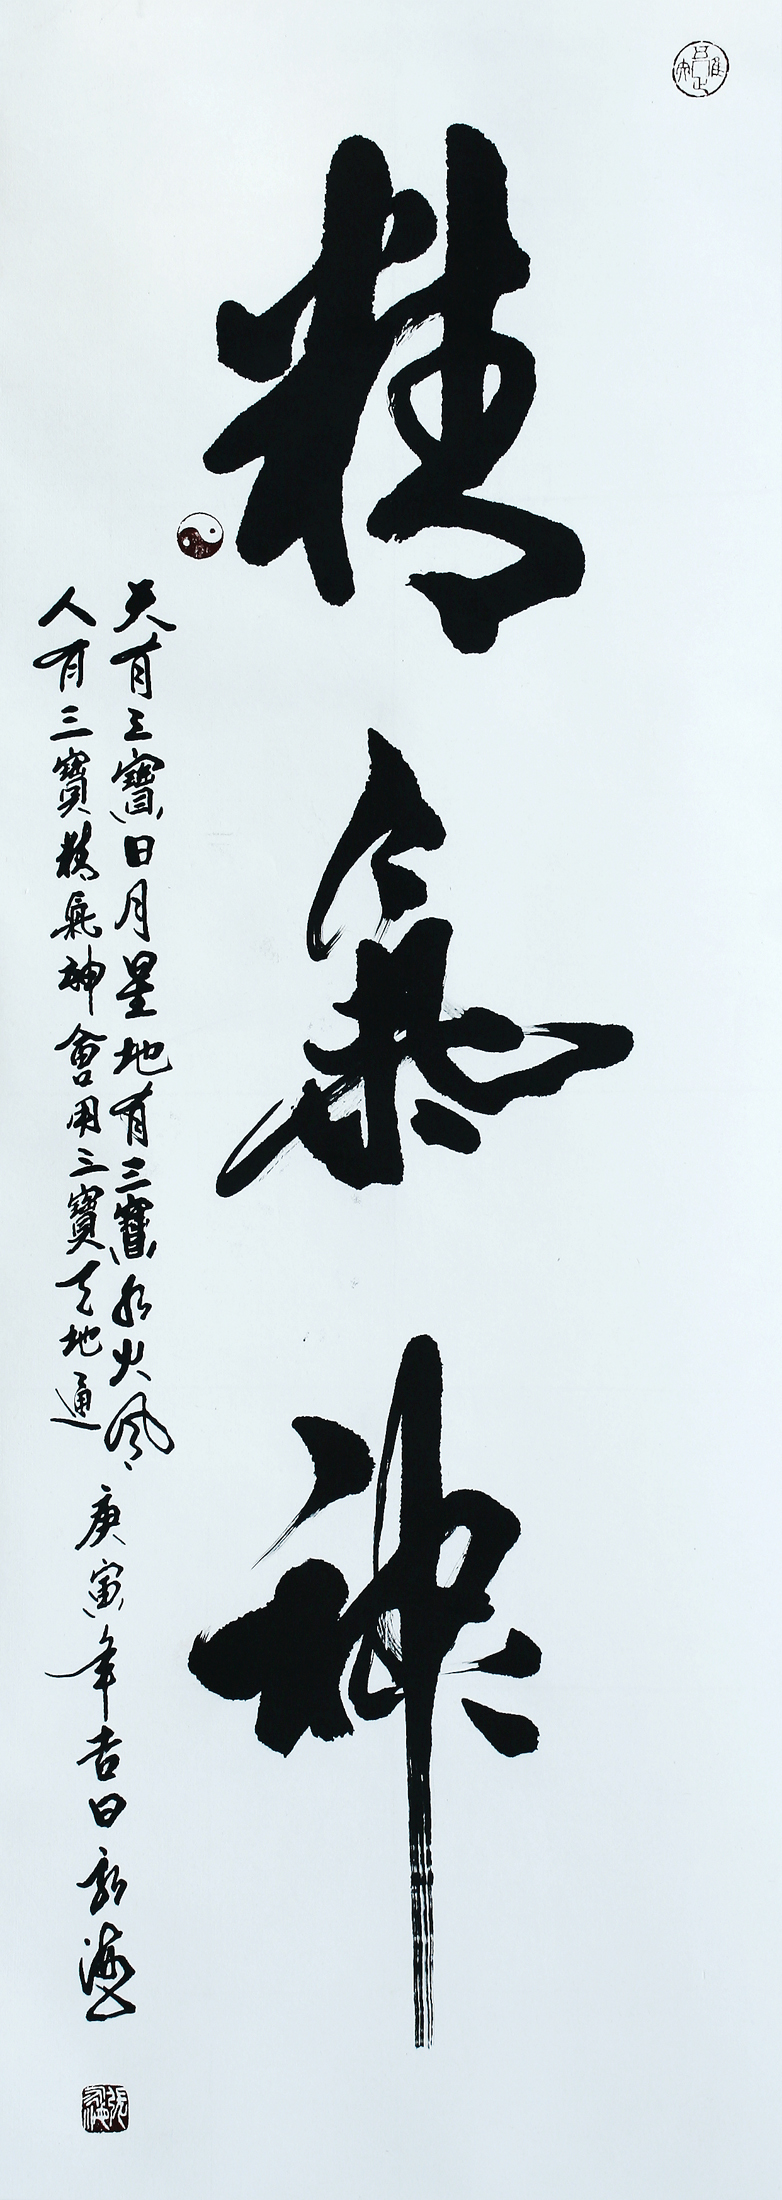 精氣神
天有三寶日月星地有三寶水火風
人有三寶精氣神會用三寶天地通
庚寅年吉日